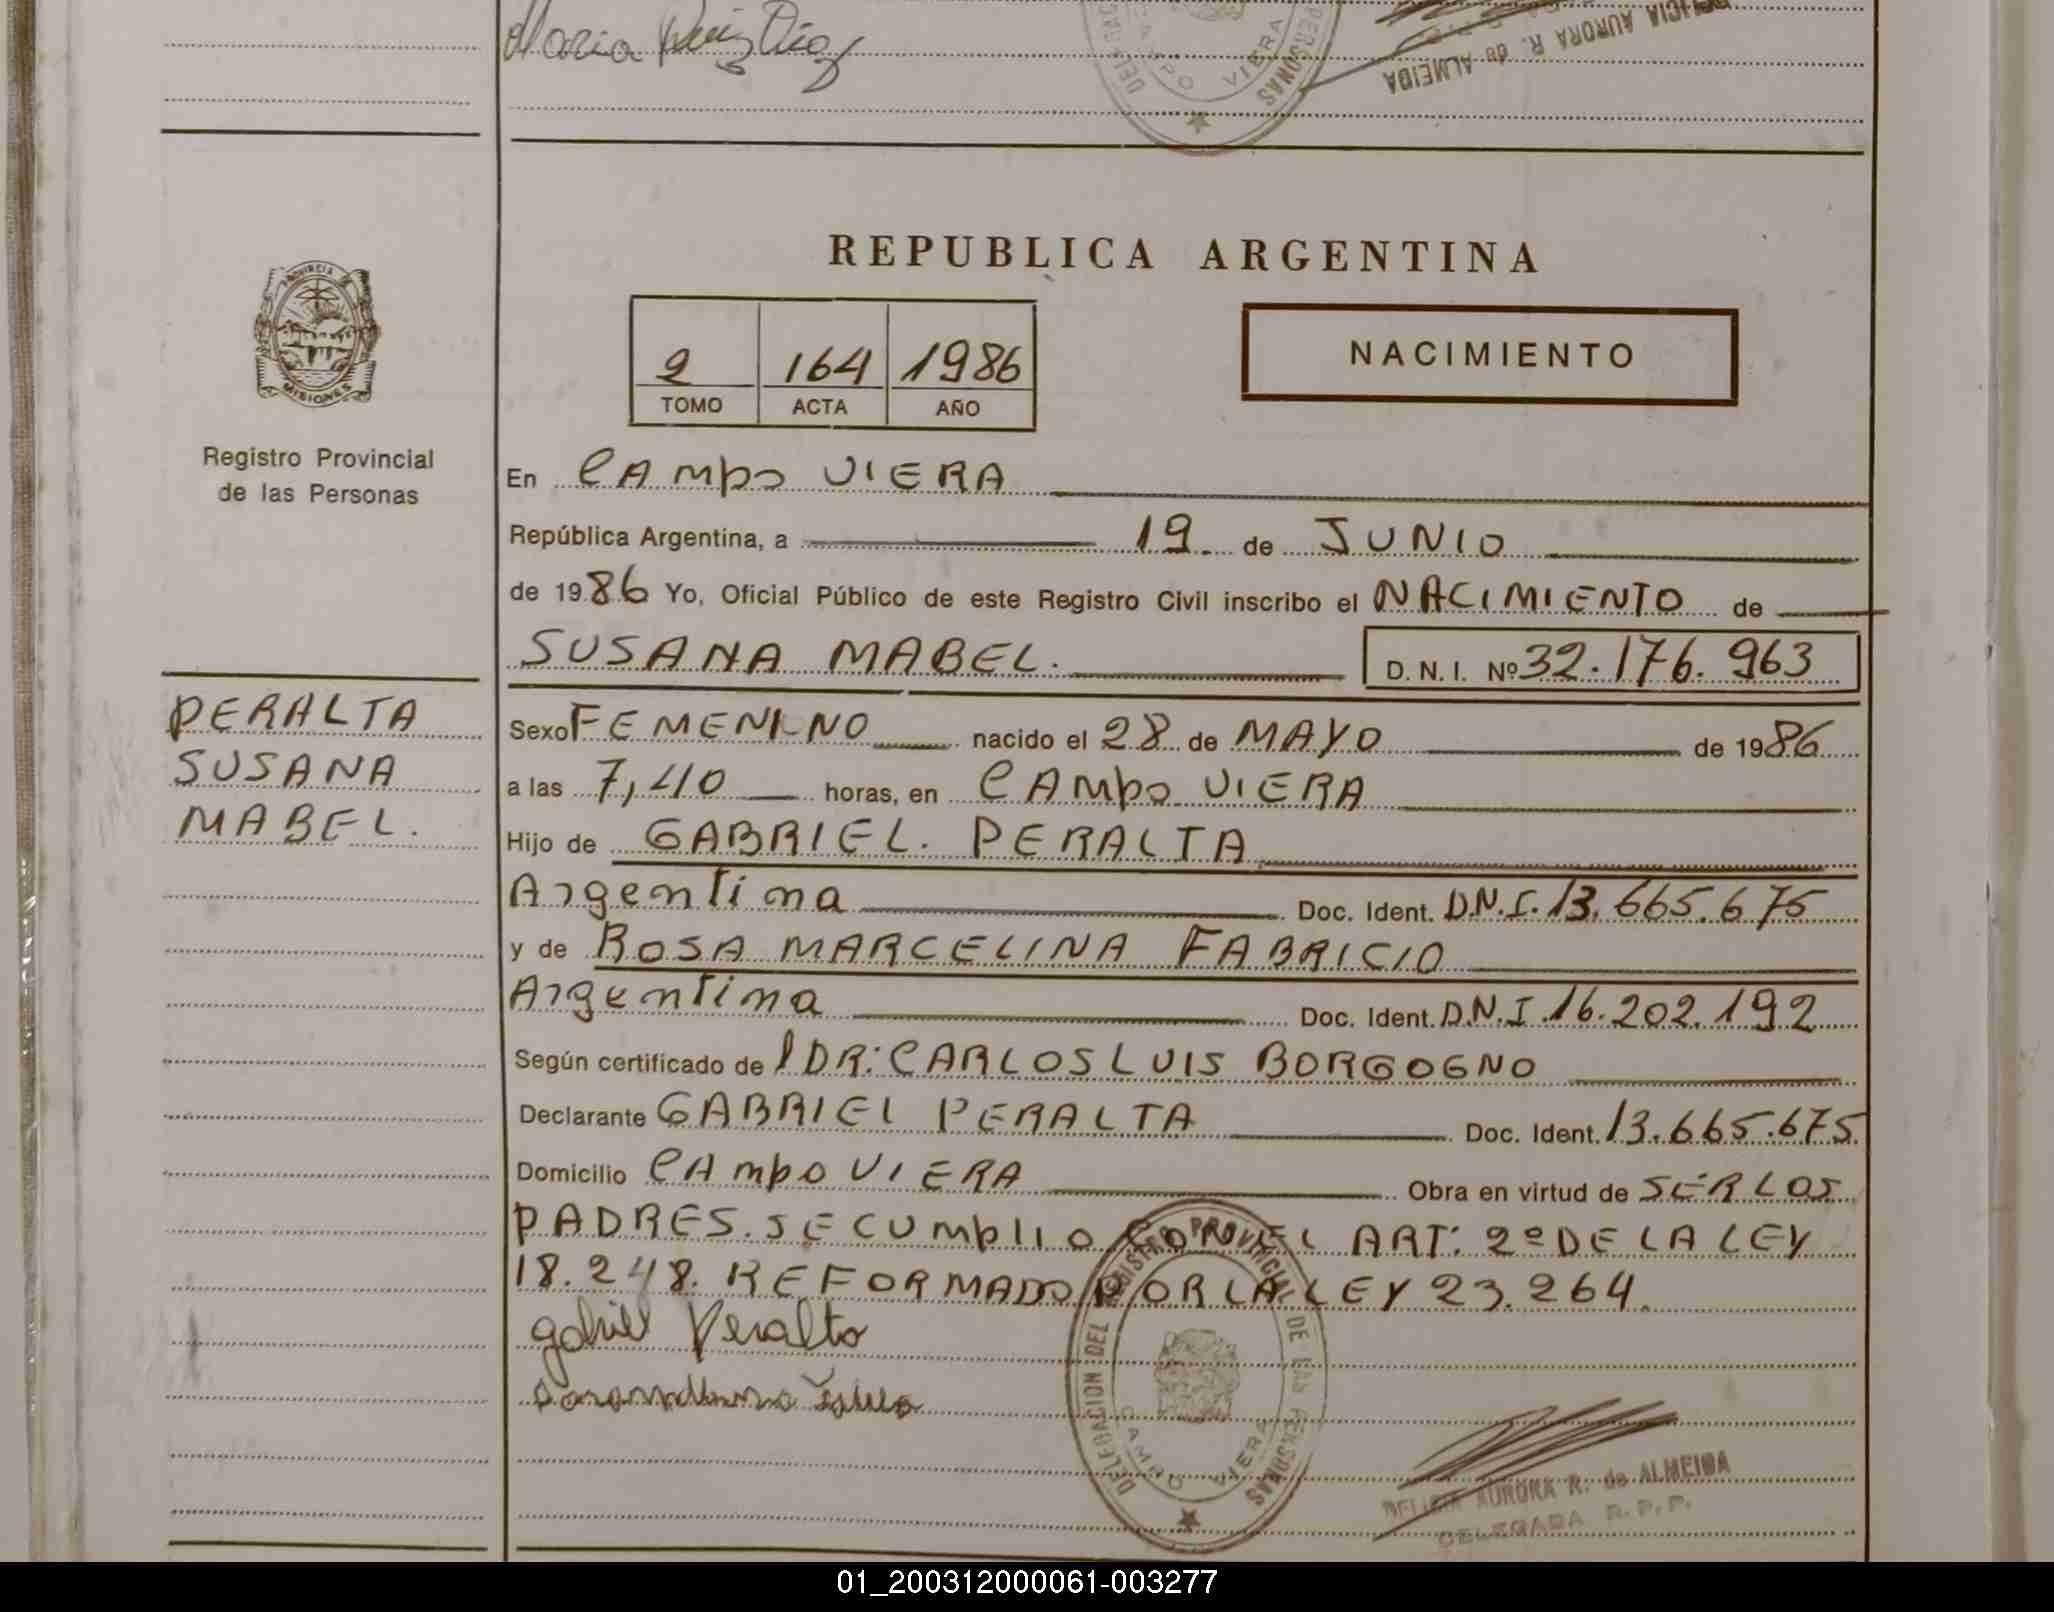 Maria Ruiz Diaz
DELICIA AURORA R. de ALMEIDA
PERSONAS
CAMPO VIERA
REPUBLICA ARGENTINA
PROVINCIA
MISIONES
Registro Provincial
de las Personas
2 164 1986
TOMO ACTA AÑO
NACIMIENTO
En CAMPO VIERA
República Argentina, a 19 de JUNIO
de 1986 Yo, Oficial Público de este Registro Civil inscribo el NACIMIENTO de
SUSANA MABEL. D. N. I. Nº 32.176.963
PERALTA
SUSANA
MABEL.
Sexo FEMENINO nacido el 28 de MAYO de 1986
a las 7,40 horas, en CAMPO VIERA
Hijo de GABRIEL. PERALTA
Argentina Doc. Ident. D.N.I. 13.665.675
y de ROSA MARCELINA FABRICIO
Argentina Doc. Ident. D.N.I. 16.202.192
Según certificado de l DR: CARLOS LUIS BORGOGNO
Declarante GABRIEL PERALTA Doc. Ident. 13.665.675
Domicilio CAMPO VIERA Obra en virtud de SER LOS
PADRES. SE CUMPLIO CON EL ART: 2º DE LA LEY
18.248. REFORMADO POR LA LEY 23.264.
gabriel Peralta
DELEGACION DEL REGISTRO PROVINCIAL DE LAS PERSONAS
CAMPO VIERA
DELICIA AURORA R. de ALMEIDA
DELEGADA R.P.P.
01_200312000061-003277